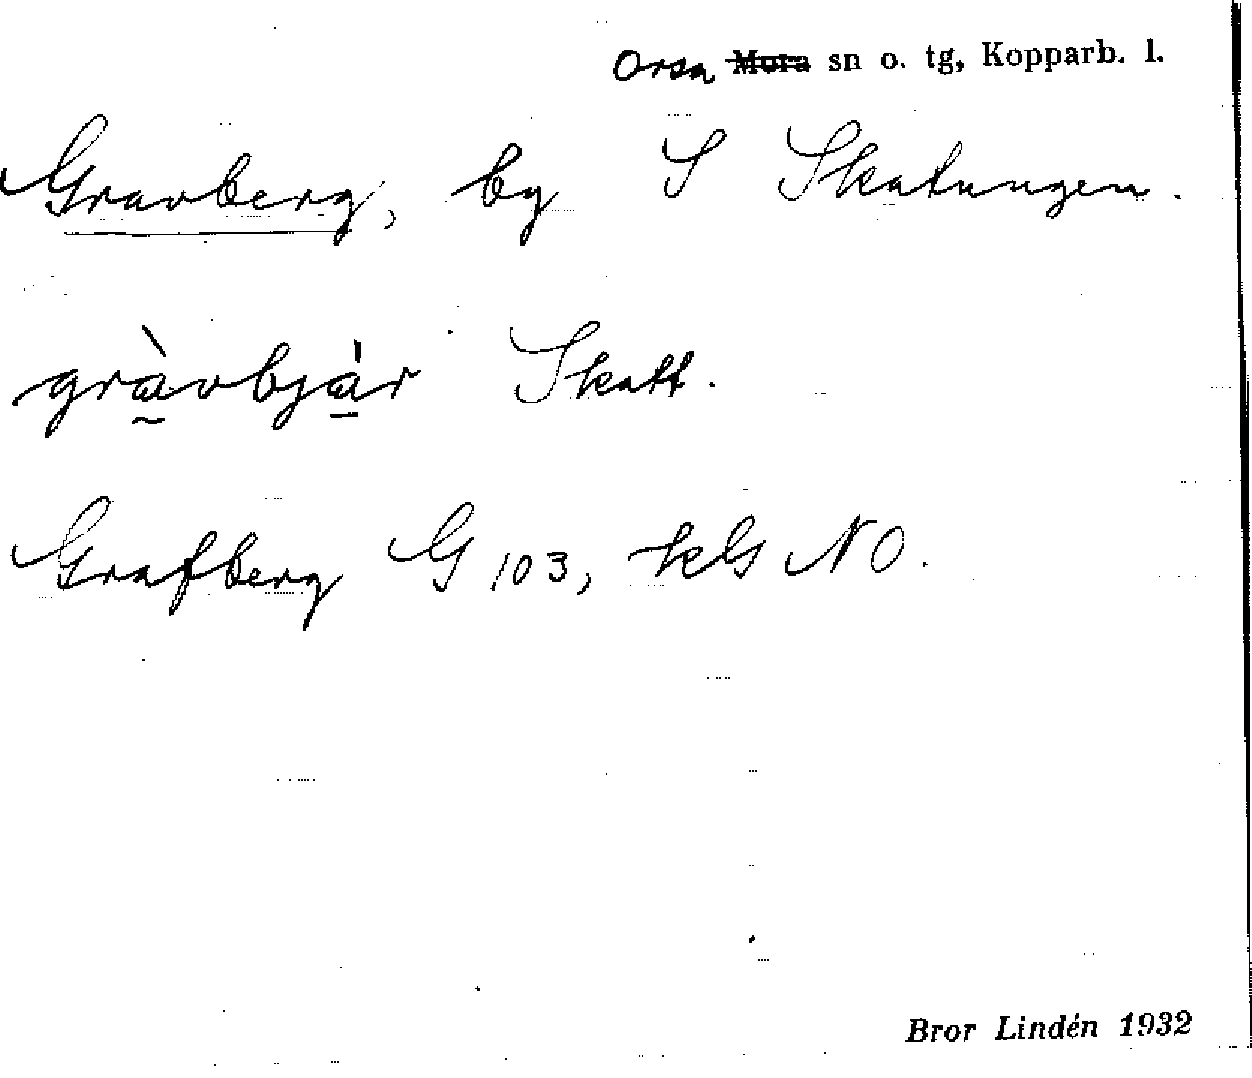 Orsa Mora sn o. tg, Kopparb. l.
Gravberg, by S Skatungen.
gràvbjàr Skatt.
Grafberg G 103, kG NO.
Bror Lindén 1932